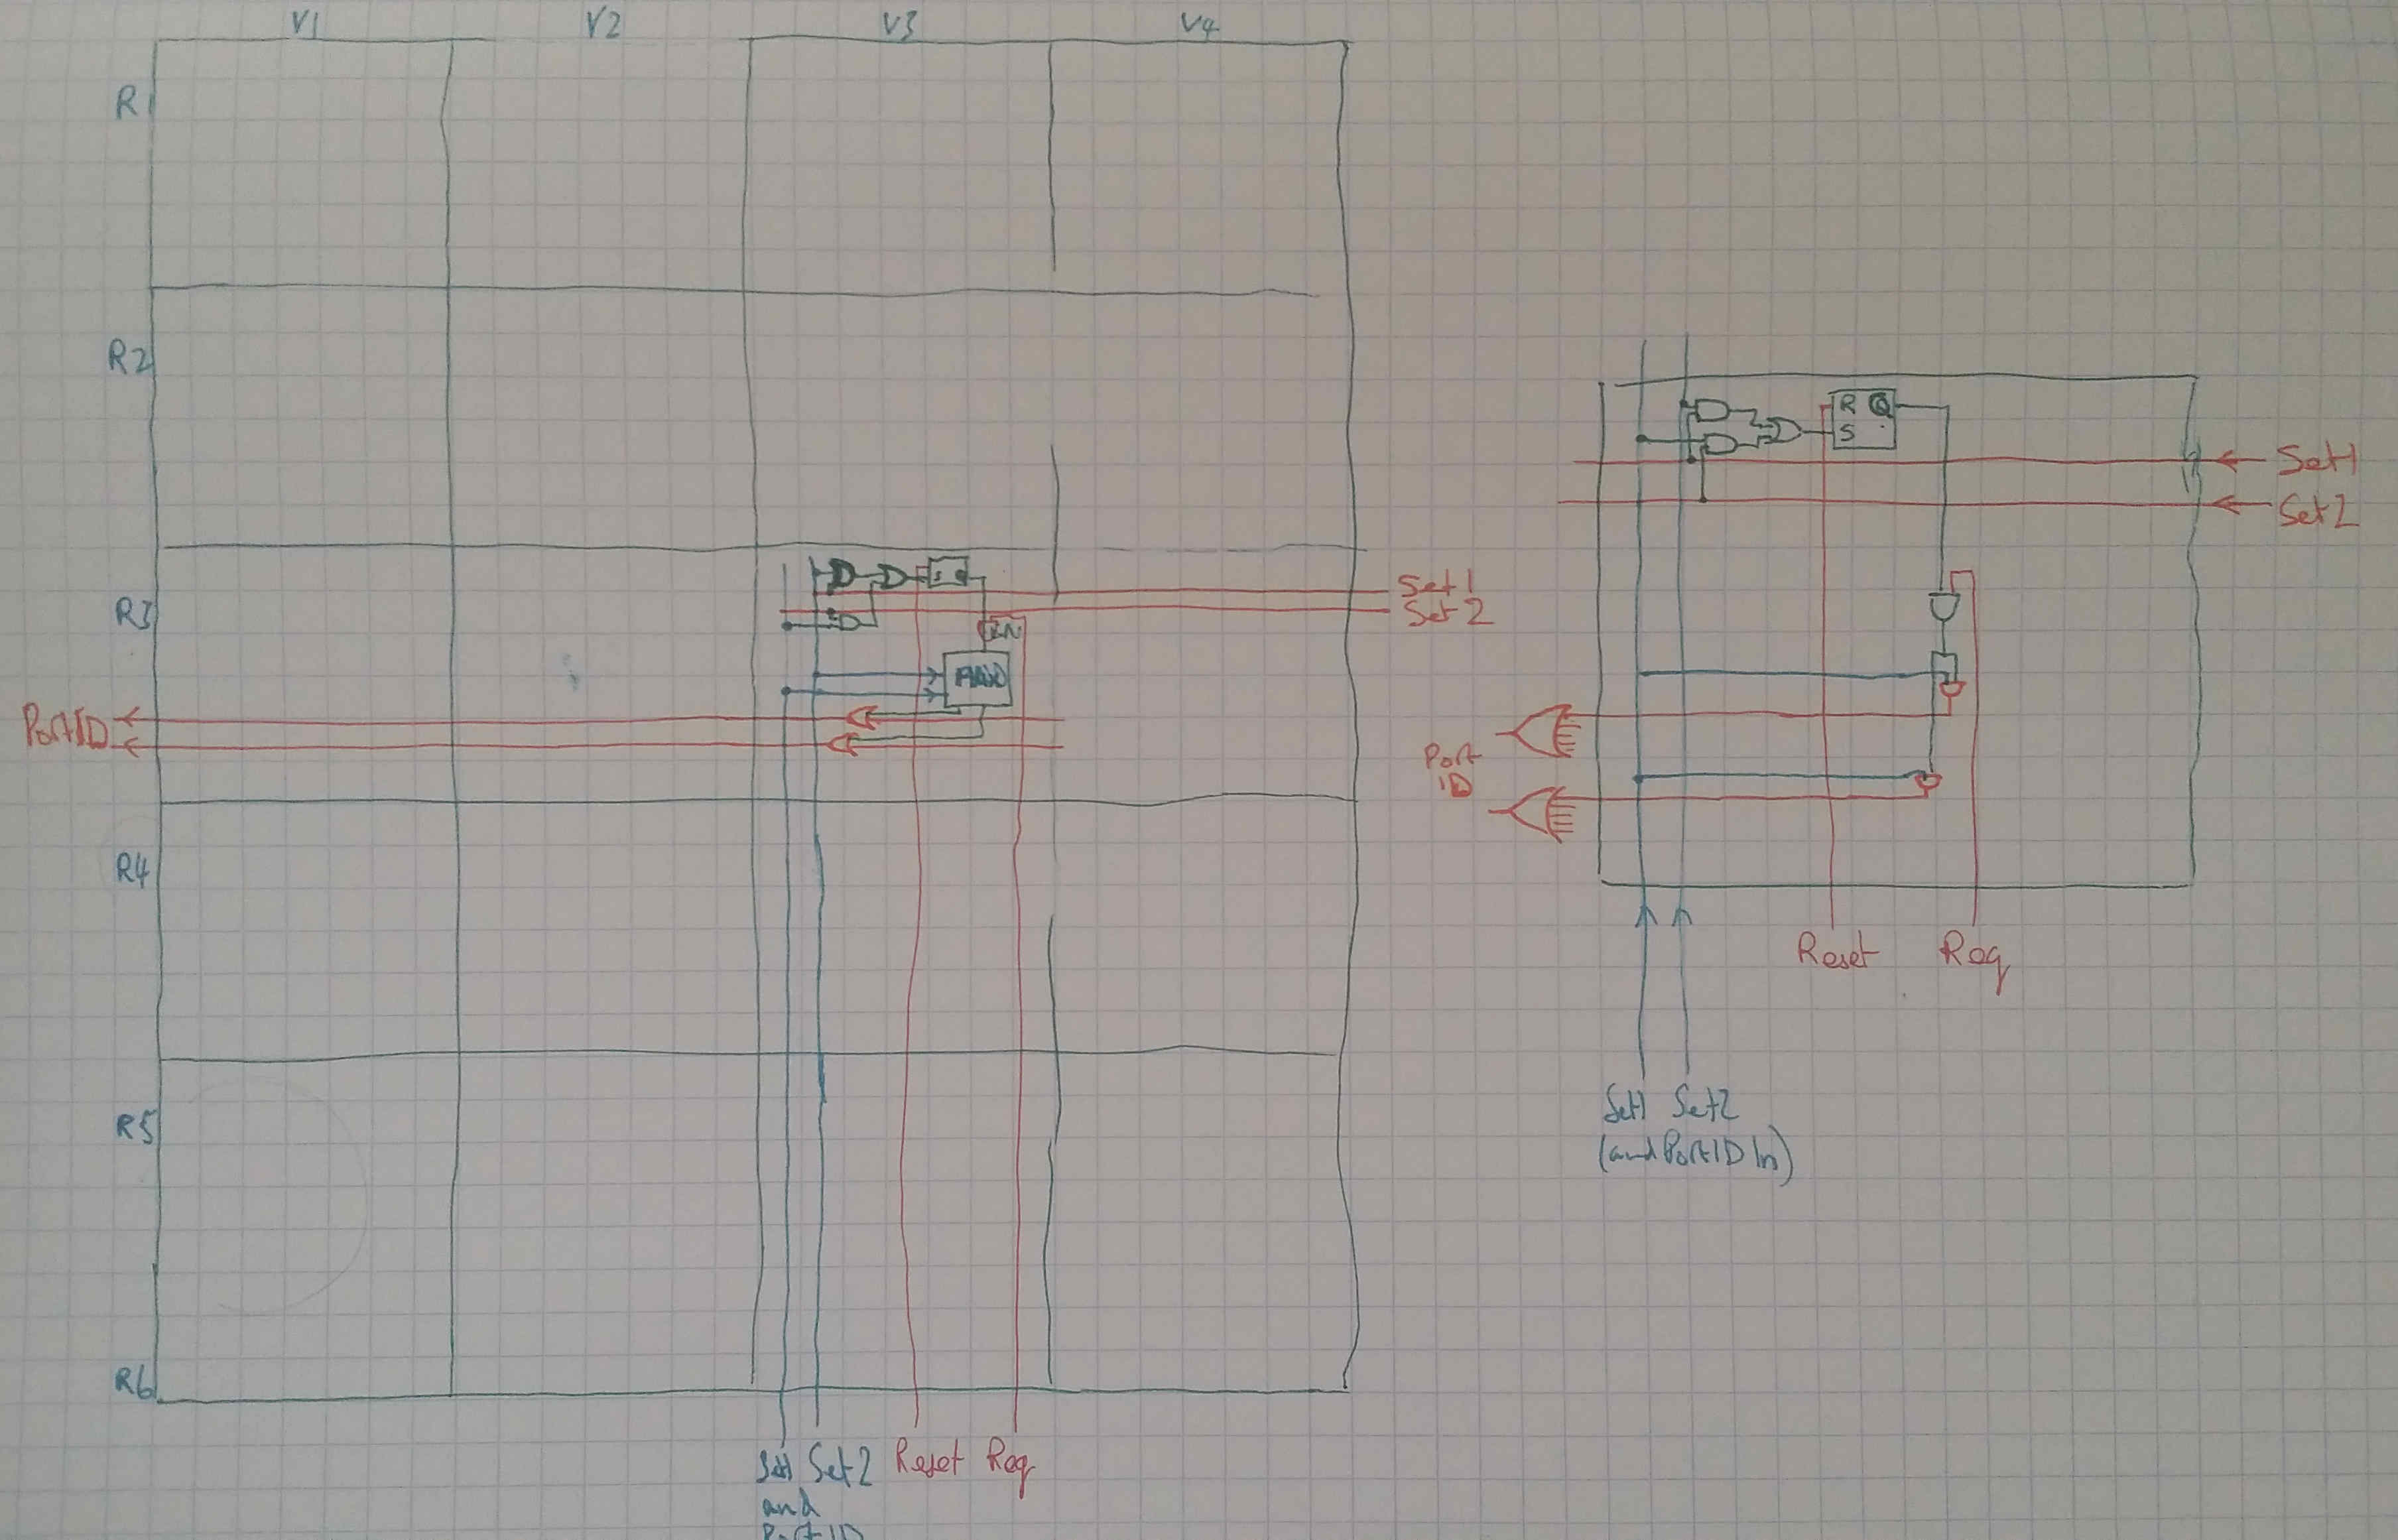 V1 V2 V3 V4
R1
R2
R3
R4
R5
R6
S Q
Set 1
Set 2
EN
AND
Port ID
Set1 Set2 Reset Req
and
Port ID
R Q
S
Set1
Set2
Port
ID
Reset Req
Set1 Set2
(and Port ID In)